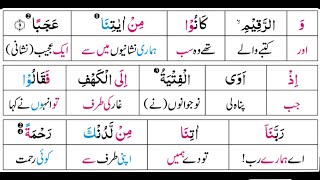 وَ الرَّقِيْمِ ۙ كَانُوْا مِنْ اٰيٰتِنَا عَجَبًا ﴿۹﴾
اور کتبے والے تھے وہ سب ہماری نشانیوں میں سے ایک عجیب (نشانی)
اِذْ اَوَى الْفِتْيَةُ اِلَى الْكَهْفِ فَقَالُوْا
جب پناہ لی نوجوانوں (نے) غار کی طرف تو انہوں نے کہا
رَبَّنَاۤ اٰتِنَا مِنْ لَّدُنْكَ رَحْمَةً
اے ہمارے رب! تو دے ہمیں اپنی طرف سے کوئی رحمت